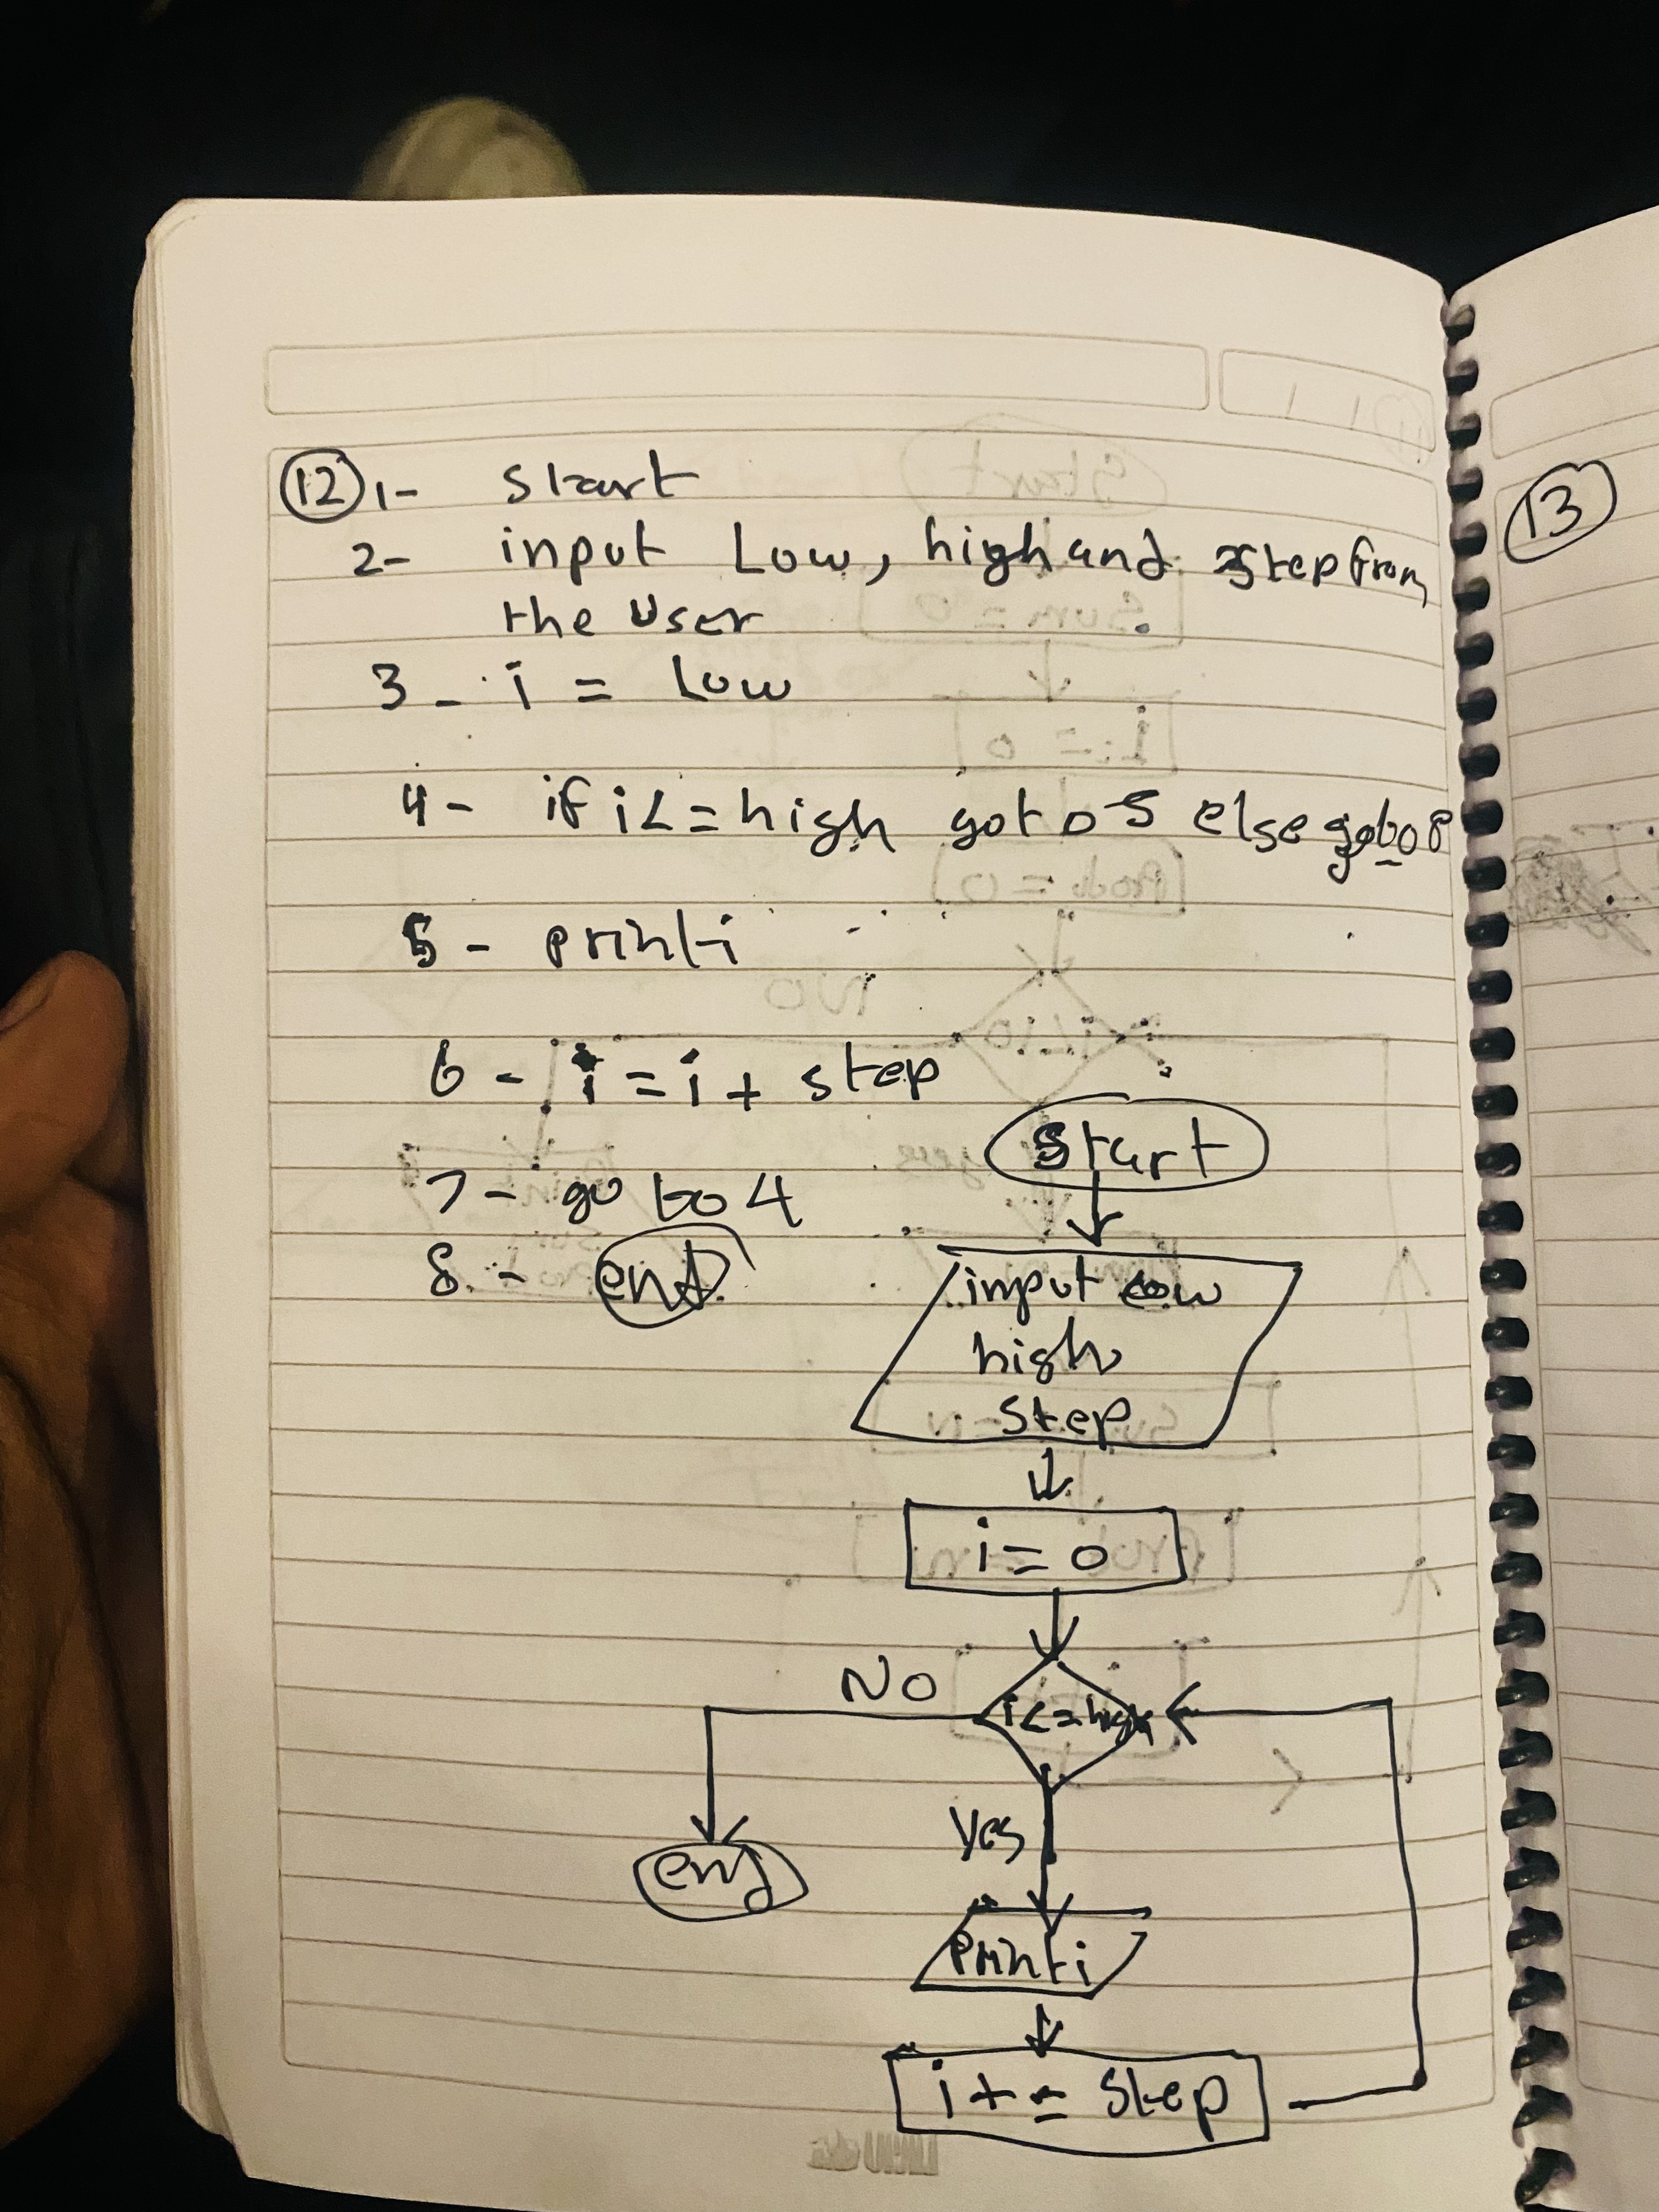 12 1- start
2- input Low, high and step from
the user
3- i = Low
4- if i<=high goto 5 else goto 8
5- print i
6- i = i + step
7- go to 4
8- end
13
start
input low
high
step
i = 0
i<=high
No
Yes
end
print i
i += step